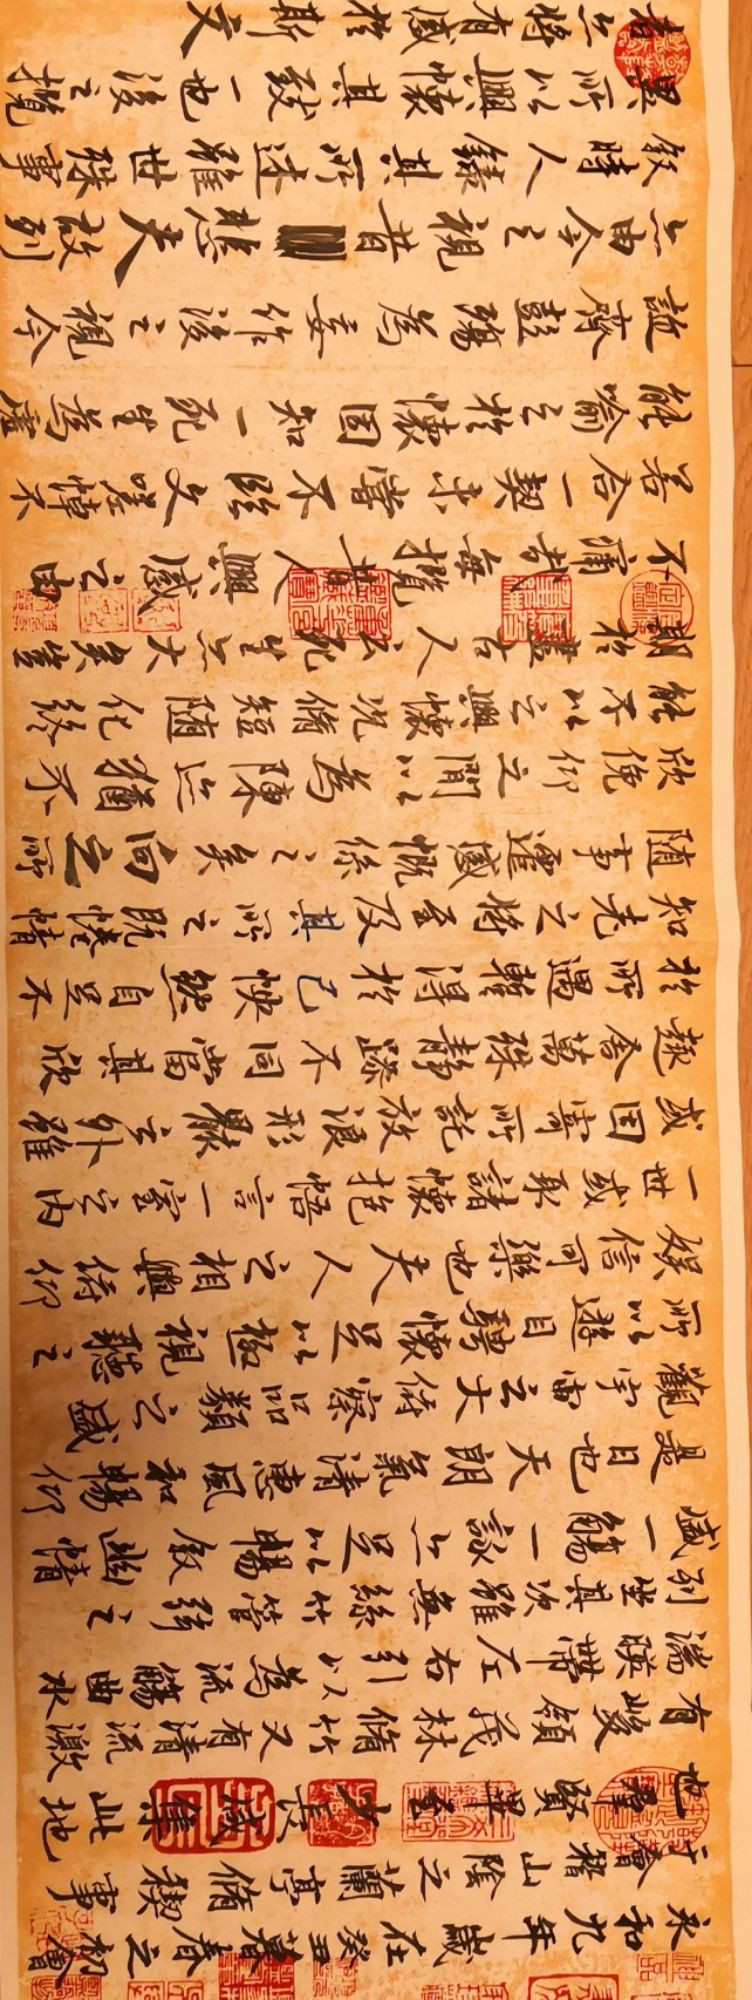 永和九年歲在癸丑暮春之初會
于會稽山陰之蘭亭脩禊事
也群賢畢至少長咸集此地
有峻領茂林脩竹又有清流激
湍暎帶左右引以為流觴曲水
列坐其次雖無絲竹管弦之
盛一觴一詠亦足以暢敘幽情
是日也天朗氣清惠風和暢仰
觀宇宙之大俯察品類之盛
所以遊目騁懷足以極視聽之
娛信可樂也夫人之相與俯仰
一世或取諸懷抱悟言一室之內
或因寄所託放浪形骸之外雖
趣舍萬殊靜躁不同當其欣
於所遇暫得於己怏然自足不
知老之將至及其所之既惓情
隨事遷感慨係之矣向之所
欣俛仰之間以為陳迹猶不
能不以之興懷況脩短隨化終
期於盡古人云死生亦大矣豈
不痛哉每攬昔人興感之由
若合一契未嘗不臨文嗟悼不
能喻之於懷固知一死生為虛
誕齊彭殤為妄作後之視今
亦由今之視昔悲夫故列
敘時人錄其所述雖世殊事
異所以興懷其致一也後之攬
者亦將有感於斯文